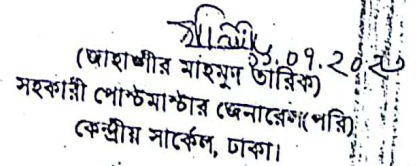 (জাহাঙ্গীর মাহমুদ তারিক)
সহকারী পোস্টমাস্টার জেনারেল(পরি)
কেন্দ্রীয় সার্কেল, ঢাকা।